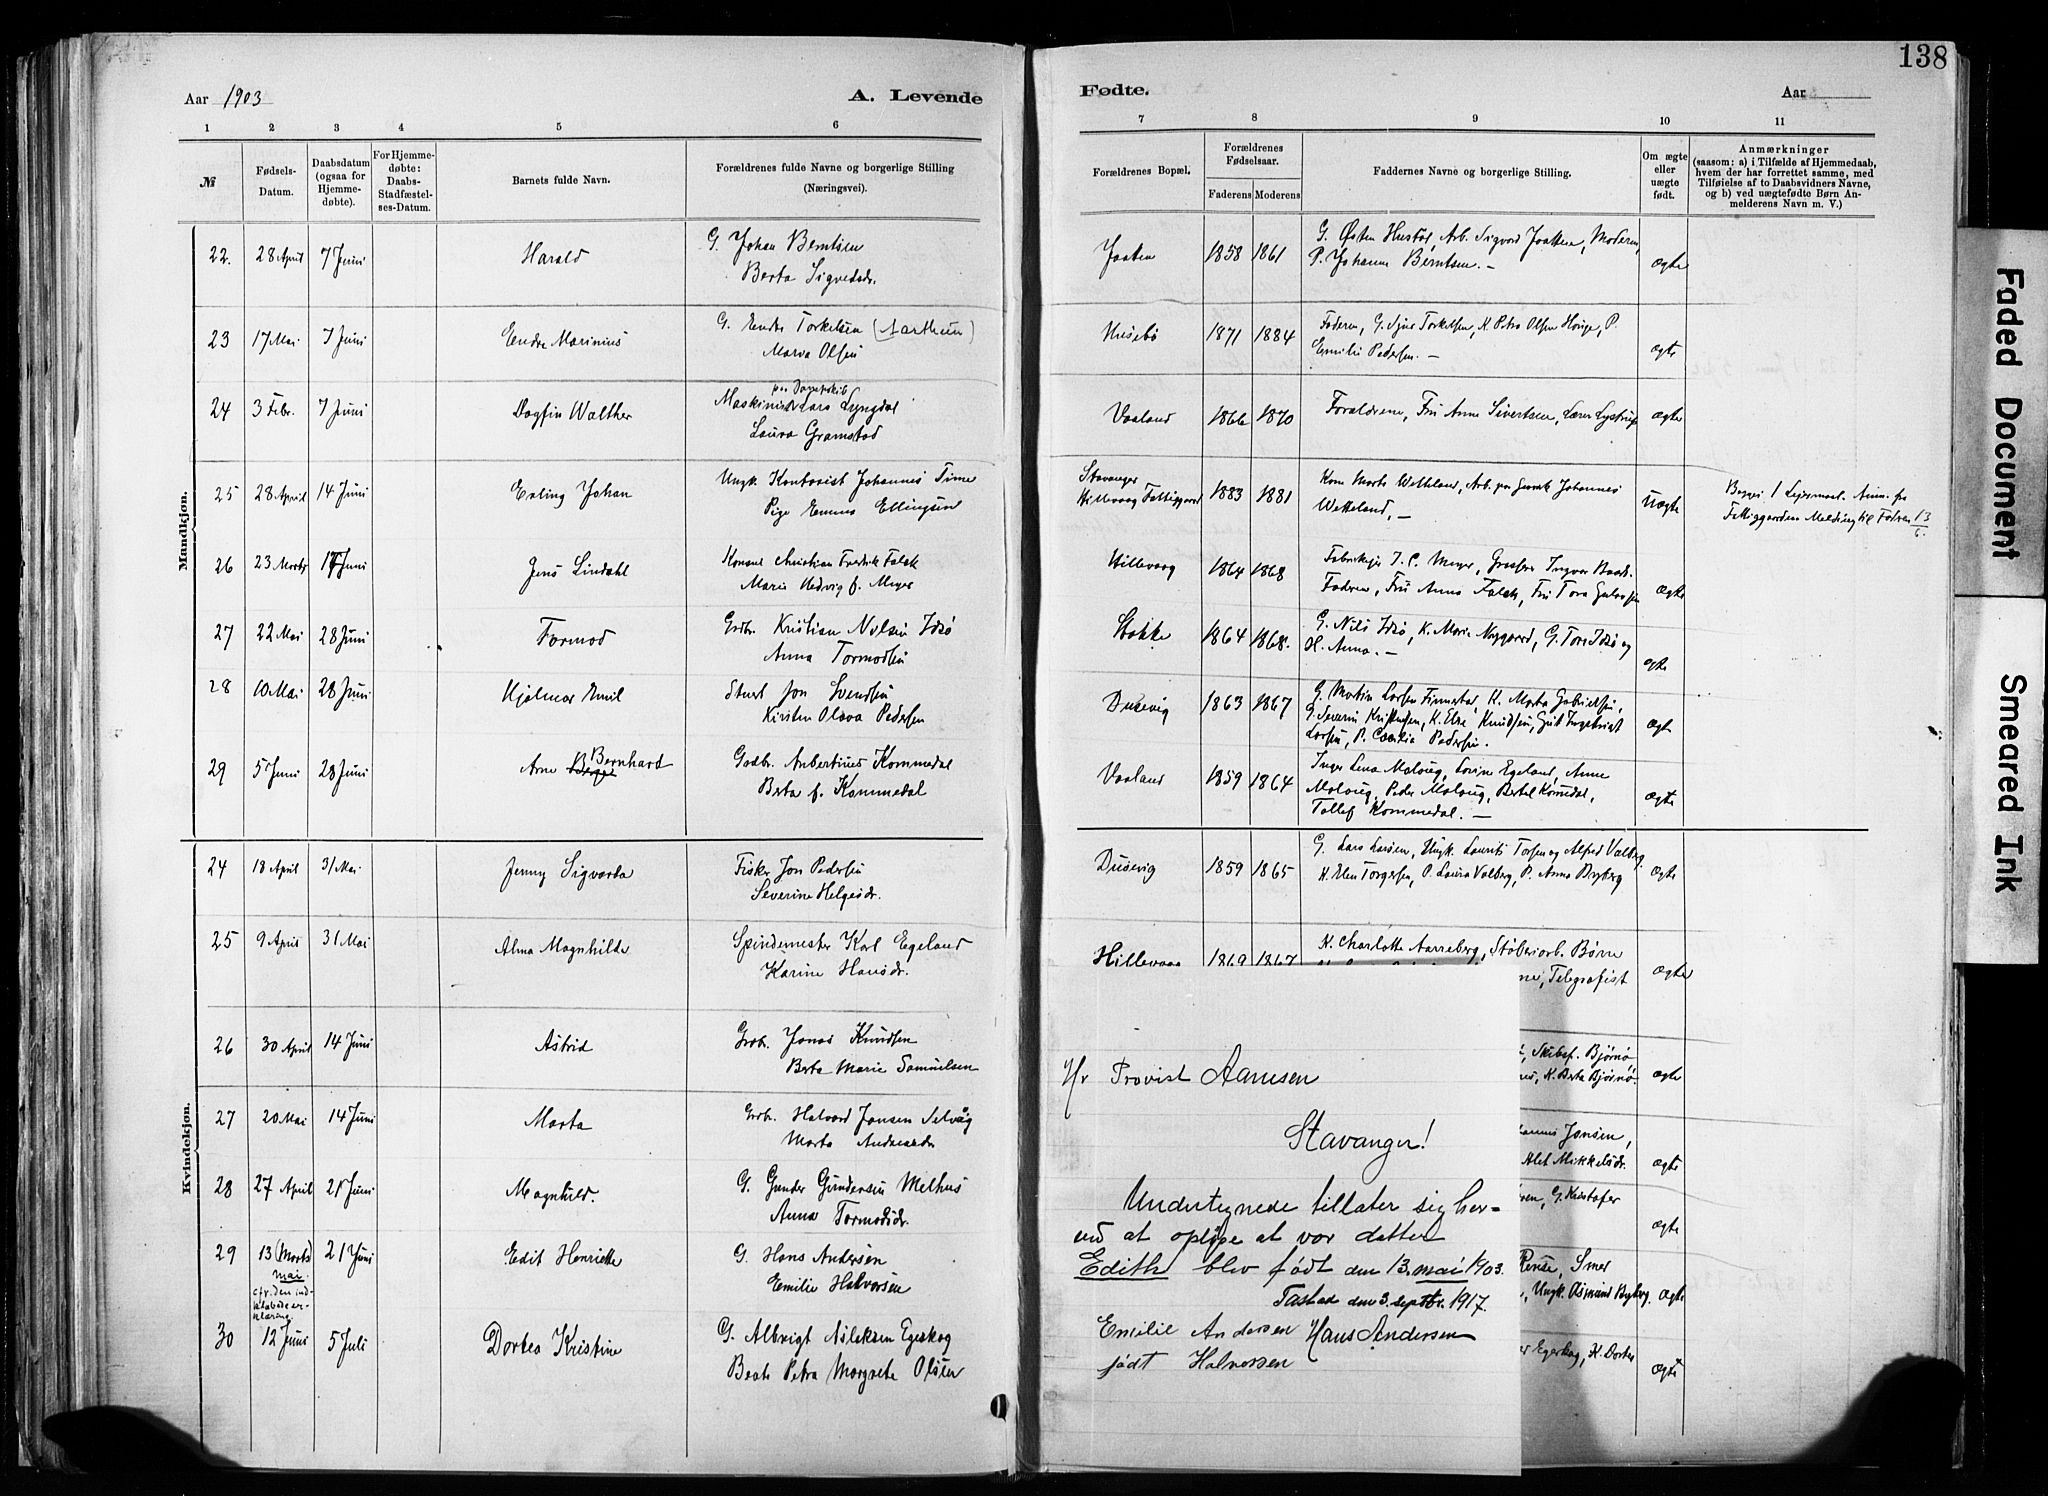 138
Aar 1903
A. Levende
Fødte.
Aar
1 2 3 4 5 6
7 8 9 10 11
№
Fødsels-
Datum.
Daabsdatum
(ogsaa for
Hjemme-
døbte).
For Hjemme-
døbte:
Daabs-
Stadfæstel-
ses-Datum.
Barnets fulde Navn.
Forældrenes fulde Navne og borgerlige Stilling
(Næringsvei).
Forældrenes Bopæl.
Forældrenes
Fødselsaar.
Faderens Moderens
Faddernes Navne og borgerlige Stilling.
Om ægte
eller
uægte
født.
Anmærkninger
(saasom: a) i Tilfælde af Hjemmedaab,
hvem der har forrettet samme, med
Tilføielse af to Daabsvidners Navne,
og b) ved uægtefødte Børn An-
melderens Navn m. V.)
Mandkjøn.
22. 28 April 7 Juni Harald G. Johan Berntsen
Berta Sigvedsdr.
Jaatten 1858 1861 G. Østen Husbø, Arb. Sigvord Jaatten, Moderen,
P. Johanne Berntsen. — ægte
23 17 Mai 7 Juni Endre Marinius G. Endre Torkelsen (Aartheim)
Marva Olsen
Husebø 1871 1884 Faderen, G. Sjur Torkelsen, K. Petra Olsen Hauge, P.
Emilie Pedersen. — ægte
24 3 Febr. 7 Juni Dagfin Walther Maskinist paa Dampskib Lars Lyngdal
Laura Gramstad
Vaaland 1866 1870 Forældrene, Fru Anne Sivertsen, Lærer Lystrup ægte
25 28 April 14 Juni Erling Johan Ungk. Kontorist Johannes Time
Pige Emma Ellingsen
Stavanger
Hillevaag Fattiggaard 1883 1881 Kone Marta Wetteland, Arb. paa Fabrik Johannes
Wetteland, — uægte
Begges 1 Leiermaal. Anm. fra
Fattiggaarden Melding til Fodren 13/6.
26 23 Marts 17 Juni Jens Lindahl Konsul Christian Fredrik Falck
Marie Hedvig f. Meyer
Hillevaag 1864 1868 Fabrikeier J. C. Meyer, Grosserer Ingvar Baade,
Faderen, Fru Anna Falck, Fru Tora ægte
27 22 Mai 28 Juni Tormod Grdbr. Kristian Nilsen Idsø
Anna Tormodsen
Stokke 1864 1868. G. Nils Idsø, K. Marie Nygaard, G. Tore Idsø og
H. Anna. — ægte
28 10 Mai 28 Juni Hjalmar Emil Stuert Jon Svendsen
Kirsten Olava Pedersen
Dusevig 1863 1867 G. Martin Larsen Finnestad, K. Marta Gabrielsen,
G. Severin Kristensen, K. Else Knudsen, Gut Ingebrigt
Larsen, P. Cecilia Pedersen. ægt
29 5 Juni 28 Juni Arne Bernhard Gadbr. Anbertinus Kommedal
Berta f. Kommedal
Vaaland 1859 1864 Inger Lena Malaug, Lovine Egeland, Anne
Malaug, Peder Malaug, Bertel Komedal,
Tollef Kommedal. — ægte
Kvindekjøn.
24 18 April 31 Mai Jenny Sigvarda Fisker Jon Pedersen
Severine Helgesdr.
Dusevig 1859 1865 G. Lars Larsen, Ungk. Laurits Torsen og Alfred Valberg,
K. Elen Torgersen, P. Laura Valberg, P. Anna Byberg ægte
25 9 April 31 Mai Alma Magnhilde Spindemester Karl Egeland
Karine Hansdr.
Hillevaag 1869 1867 K. Charlotte Aarreberg, Støberiarb. Børne
ne, Telegrafist ægte
26 30 April 14 Juni Astrid Grdbr. Jonas Knudsen
Berta Marie Samuelsen
, Skibsf. Bjørnø
nes, K. Berta Bjørnø. ægte
27 20 Mai 14 Juni Marta Grdbr. Halvard Jansen Selvåg
Marta Andersdr
hannes Jansen,
Alet Mikkelsdr. ægte
28 27 April 21 Juni Magnhild. G. Gunder Gundersen Melhus
Anna Tormodsdr.
ren, G. Kristofer
ægte
29 13 (Marts) mai 21 Juni Edit Henriette G. Hans Andersen
Emilie Halvorsen
cfr. den ind-
klæbede er-
klæring.
Rense, Smer
, Ungk. Asmund Byberg. ægte
30 12 Juni 5 Juli Dortea Kristine G. Albrigt Aslaksen Egeskog
Beate Petra Margrete Olsen
er Egeskog, K. Dortea
ægte
Hr Provist Aamesen
Stavanger!
Undertegnede tillater sig her-
ved at oplyse at vor datter
Edith blev født den 13. mai 1903.
Tastad den 3. septbr. 1917.
Emilie Andersen Hans Andersen
født Halvorsen
Faded Document
Smeared Ink